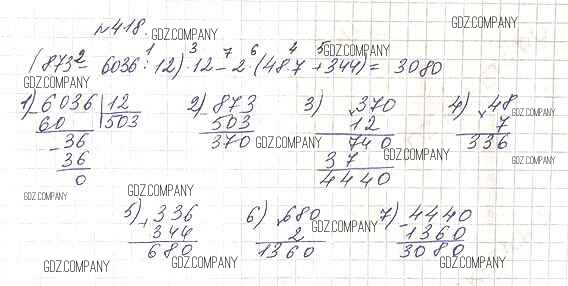 №418.
GDZ.COMPANY GDZ.COMPANY
1 3 7 6 4 5 GDZ.COMPANY
(873 2- 6036 : 12) · 12 - 2 · (48·7 + 344) = 3080
GDZ.COMPANY
1) 6036 | 12 2) - 873 3) × 370 4) × 48
60 503 503 12 7
- 36 370 GDZ.COMPANY 740 336 GDZ.COMPANY
36 37 GDZ.COMPANY
0 4440
GDZ.COMPANY GDZ.COMPANY
5) + 336 6) × 680 7) - 4440
344 2 GDZ.COMPANY 1360
680 1360 3080
GDZ.COMPANY GDZ.COMPANY GDZ.COMPANY